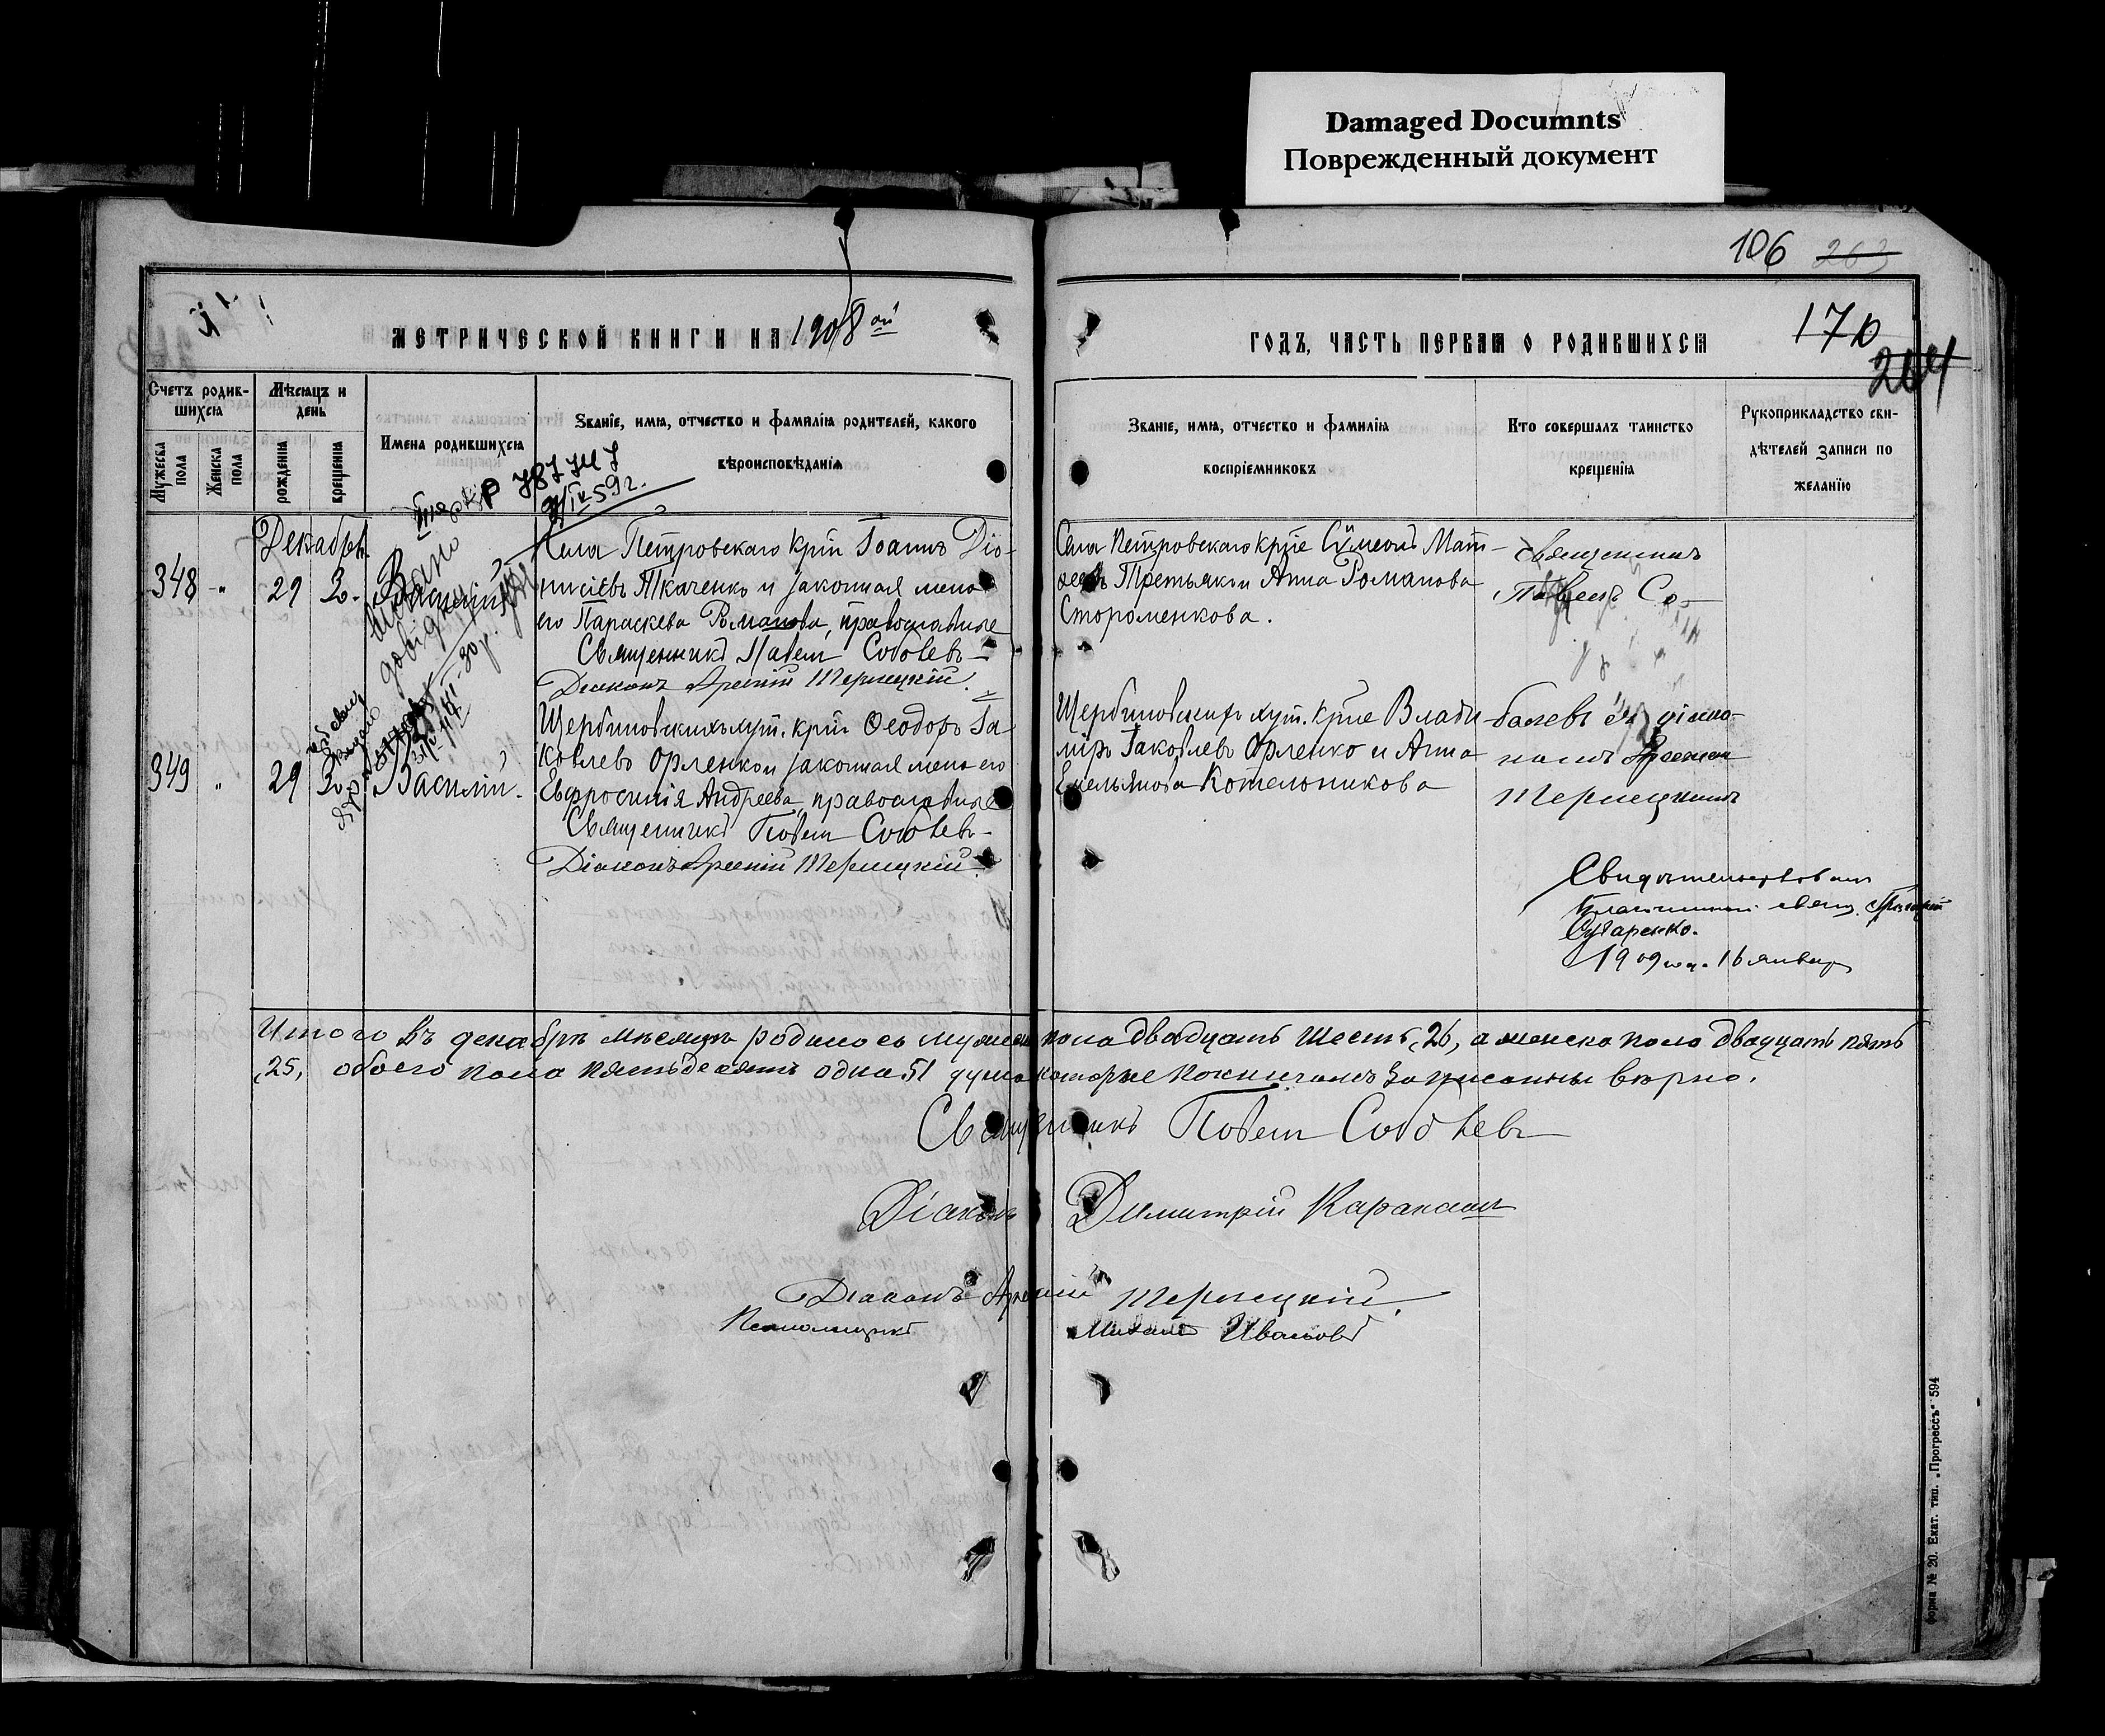 Damaged Documnts
Поврежденный документ
106 263
МЕТРИЧЕСКОЙ КНИГИ НА 1908 ой
ГОДЪ, ЧАСТЬ ПЕРВАЯ О РОДИВШИХСЯ
170
264
Счетъ родив-
шихся
Мужеска пола
Женска пола
Мѣсяцъ и
день
рожденія
крещенія
Имена родившихся
Званіе, имя, отчество и фамилія родителей, какого
вѣроисповѣданія
Званіе, имя, отчество и фамилія
воспріемниковъ
Кто совершалъ таинство
крещенія
Рукоприкладство сви-
дѣтелей записи по
желанію
Декабрь
348 " 29 30. Василій
Села Петровскаго крн Іоаннъ Діо-
нисіевъ Ткаченко и законная жена
его Параскева Романова, православные
Священникъ Павелъ Соболевъ
Діаконъ Арсеній Терлецкій.
Села Петровскаго крне Сүмеонъ Мат-
ѳеевъ Третьяк и Анна Романова
Стороженкова.
Священникъ
Павелъ Со-
349 " 29 30 Василій.
Щербиновскихъ хут. крн Ѳеодоръ Іа-
ковлевъ Орленко и законная жена его
Евфросинія Андреева, православные
Священникъ Павелъ Соболевъ
Діаконъ Арсеній Терлецкій.
Щербиновскихъ хут. крне Влади-
міръ Іаковлевъ Орленко и Анна
Емельянова Котельникова
болевъ съ діако-
номъ Арсеніем
Терлецкимъ
Свидѣтельствовалъ
Благочинный свящ.
1909 год. 16 январ
Итого въ декабрѣ мѣсяцѣ родилось мужеска пола двадцать шесть, 26, а женска пола двадцать пять
25, обоего пола пятьдесятъ одна 51 душа которые по книгамъ записаны вѣрно.
Священникъ Павелъ Соболевъ
Діаконъ Димитрій Каракаш
Діаконъ Арсеній Терлецкій.
Псаломщикъ Михаилъ Ивановъ
Форма № 20. Екат. тип. „Прогрессъ" 594